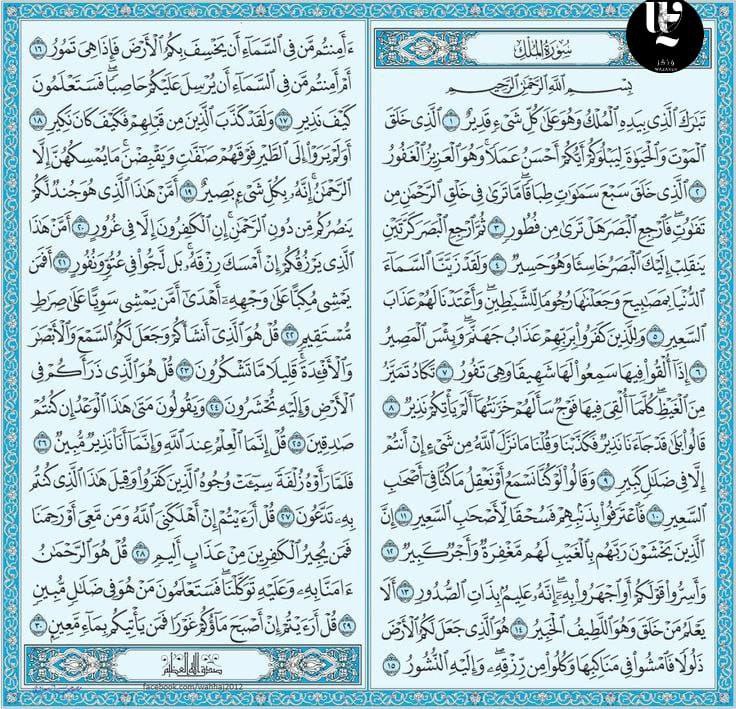 سُورَةُ المُلْكِ
بِسْمِ اللَّهِ الرَّحْمَٰنِ الرَّحِيمِ
تَبَٰرَكَ ٱلَّذِي بِيَدِهِ ٱلْمُلْكُ وَهُوَ عَلَىٰ كُلِّ شَيْءٍ قَدِيرٌ ١ ٱلَّذِي خَلَقَ
ٱلْمَوْتَ وَٱلْحَيَوٰةَ لِيَبْلُوَكُمْ أَيُّكُمْ أَحْسَنُ عَمَلًا ۚ وَهُوَ ٱلْعَزِيزُ ٱلْغَفُورُ
٢ ٱلَّذِي خَلَقَ سَبْعَ سَمَٰوَٰتٍ طِبَاقًا ۖ مَّا تَرَىٰ فِي خَلْقِ ٱلرَّحْمَٰنِ مِن
تَفَٰوُتٍ ۖ فَٱرْجِعِ ٱلْبَصَرَ هَلْ تَرَىٰ مِن فُطُورٍ ٣ ثُمَّ ٱرْجِعِ ٱلْبَصَرَ كَرَّتَيْنِ
يَنقَلِبْ إِلَيْكَ ٱلْبَصَرُ خَاسِئًا وَهُوَ حَسِيرٌ ٤ وَلَقَدْ زَيَّنَّا ٱلسَّمَآءَ
ٱلدُّنْيَا بِمَصَٰبِيحَ وَجَعَلْنَٰهَا رُجُومًا لِّلشَّيَٰطِينِ ۖ وَأَعْتَدْنَا لَهُمْ عَذَابَ
ٱلسَّعِيرِ ٥ وَلِلَّذِينَ كَفَرُوا۟ بِرَبِّهِمْ عَذَابُ جَهَنَّمَ ۖ وَبِئْسَ ٱلْمَصِيرُ
٦ إِذَآ أُلْقُوا۟ فِيهَا سَمِعُوا۟ لَهَا شَهِيقًا وَهِيَ تَفُورُ ٧ تَكَادُ تَمَيَّزُ
مِنَ ٱلْغَيْظِ ۖ كُلَّمَآ أُلْقِيَ فِيهَا فَوْجٌ سَأَلَهُمْ خَزَنَتُهَآ أَلَمْ يَأْتِكُمْ نَذِيرٌ ٨
قَالُوا۟ بَلَىٰ قَدْ جَآءَنَا نَذِيرٌ فَكَذَّبْنَا وَقُلْنَا مَا نَزَّلَ ٱللَّهُ مِن شَيْءٍ إِنْ أَنتُمْ
إِلَّا فِي ضَلَٰلٍ كَبِيرٍ ٩ وَقَالُوا۟ لَوْ كُنَّا نَسْمَعُ أَوْ نَعْقِلُ مَا كُنَّا فِيٓ أَصْحَٰبِ
ٱلسَّعِيرِ ١٠ فَٱعْتَرَفُوا۟ بِذَنۢبِهِمْ فَسُحْقًا لِّأَصْحَٰبِ ٱلسَّعِيرِ ١١ إِنَّ
ٱلَّذِينَ يَخْشَوْنَ رَبَّهُم بِٱلْغَيْبِ لَهُم مَّغْفِرَةٌ وَأَجْرٌ كَبِيرٌ ١٢
وَأَسِرُّوا۟ قَوْلَكُمْ أَوِ ٱجْهَرُوا۟ بِهِۦٓ ۖ إِنَّهُۥ عَلِيمٌۢ بِذَاتِ ٱلصُّدُورِ ١٣ أَلَا
يَعْلَمُ مَنْ خَلَقَ وَهُوَ ٱللَّطِيفُ ٱلْخَبِيرُ ١٤ هُوَ ٱلَّذِي جَعَلَ لَكُمُ ٱلْأَرْضَ
ذَلُولًا فَٱمْشُوا۟ فِي مَنَاكِبِهَا وَكُلُوا۟ مِن رِّزْقِهِۦ ۖ وَإِلَيْهِ ٱلنُّشُورُ ١٥
ءَأَمِنتُم مَّن فِي ٱلسَّمَآءِ أَن يَخْسِفَ بِكُمُ ٱلْأَرْضَ فَإِذَا هِيَ تَمُورُ ١٦
أَمْ أَمِنتُم مَّن فِي ٱلسَّمَآءِ أَن يُرْسِلَ عَلَيْكُمْ حَاصِبًا ۖ فَسَتَعْلَمُونَ
كَيْفَ نَذِيرِ ١٧ وَلَقَدْ كَذَّبَ ٱلَّذِينَ مِن قَبْلِهِمْ فَكَيْفَ كَانَ نَكِيرِ ١٨
أَوَلَمْ يَرَوْا۟ إِلَى ٱلطَّيْرِ فَوْقَهُمْ صَٰٓفَّٰتٍ وَيَقْبِضْنَ ۚ مَا يُمْسِكُهُنَّ إِلَّا
ٱلرَّحْمَٰنُ ۚ إِنَّهُۥ بِكُلِّ شَيْءٍۭ بَصِيرٌ ١٩ أَمَّنْ هَٰذَا ٱلَّذِي هُوَ جُندٌ لَّكُمْ
يَنصُرُكُم مِّن دُونِ ٱلرَّحْمَٰنِ ۚ إِنِ ٱلْكَٰفِرُونَ إِلَّا فِي غُرُورٍ ٢٠ أَمَّنْ هَٰذَا
ٱلَّذِي يَرْزُقُكُمْ إِنْ أَمْسَكَ رِزْقَهُۥ ۚ بَل لَّجُّوا۟ فِي عُتُوٍّ وَنُفُورٍ ٢١ أَفَمَن
يَمْشِي مُكِبًّا عَلَىٰ وَجْهِهِۦٓ أَهْدَىٰٓ أَمَّن يَمْشِي سَوِيًّا عَلَىٰ صِرَٰطٍ
مُّسْتَقِيمٍ ٢٢ قُلْ هُوَ ٱلَّذِيٓ أَنشَأَكُمْ وَجَعَلَ لَكُمُ ٱلسَّمْعَ وَٱلْأَبْصَٰرَ
وَٱلْأَفْـِٔدَةَ ۖ قَلِيلًا مَّا تَشْكُرُونَ ٢٣ قُلْ هُوَ ٱلَّذِي ذَرَأَكُمْ فِي
ٱلْأَرْضِ وَإِلَيْهِ تُحْشَرُونَ ٢٤ وَيَقُولُونَ مَتَىٰ هَٰذَا ٱلْوَعْدُ إِن كُنتُمْ
صَٰدِقِينَ ٢٥ قُلْ إِنَّمَا ٱلْعِلْمُ عِندَ ٱللَّهِ وَإِنَّمَآ أَنَا۠ نَذِيرٌ مُّبِينٌ ٢٦
فَلَمَّا رَأَوْهُ زُلْفَةً سِيٓـَٔتْ وُجُوهُ ٱلَّذِينَ كَفَرُوا۟ وَقِيلَ هَٰذَا ٱلَّذِي كُنتُم
بِهِۦ تَدَّعُونَ ٢٧ قُلْ أَرَءَيْتُمْ إِنْ أَهْلَكَنِيَ ٱللَّهُ وَمَن مَّعِيَ أَوْ رَحِمَنَا
فَمَن يُجِيرُ ٱلْكَٰفِرِينَ مِنْ عَذَابٍ أَلِيمٍ ٢٨ قُلْ هُوَ ٱلرَّحْمَٰنُ
ءَامَنَّا بِهِۦ وَعَلَيْهِ تَوَكَّلْنَا ۖ فَسَتَعْلَمُونَ مَنْ هُوَ فِي ضَلَٰلٍ مُّبِينٍ
٢٩ قُلْ أَرَءَيْتُمْ إِنْ أَصْبَحَ مَآؤُكُمْ غَوْرًا فَمَن يَأْتِيكُم بِمَآءٍ مَّعِينٍۭ ٣٠
صدق الله العظيم
facebook.com/wahhaj2012